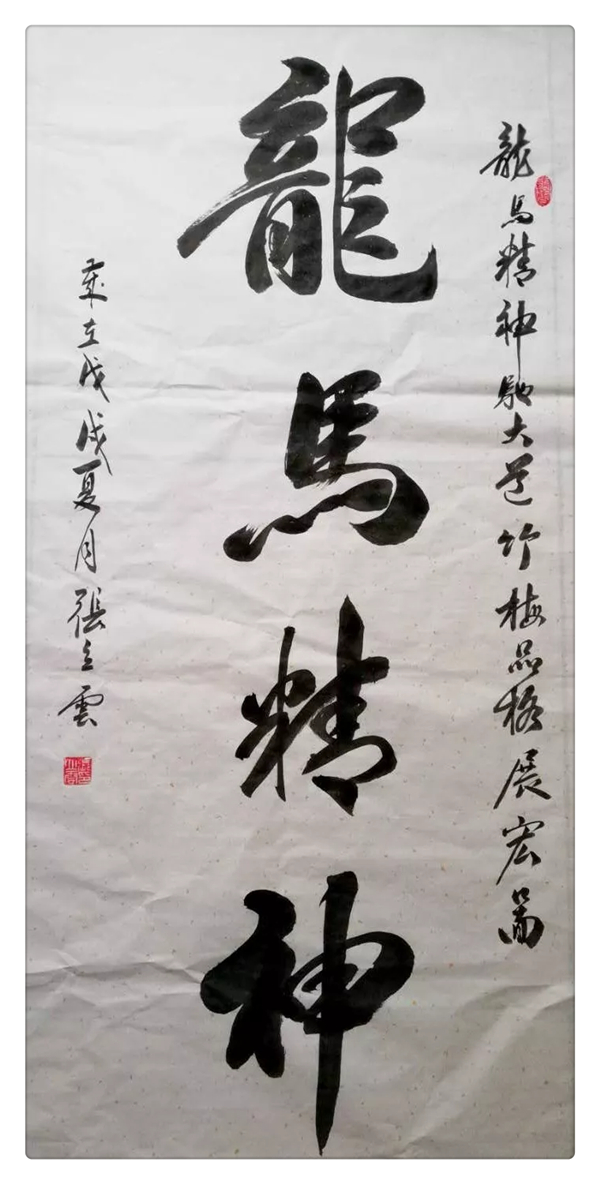 龍馬精神馳大道竹梅品格展宏啚
龍馬精神
歲在戊戌夏月張立雲